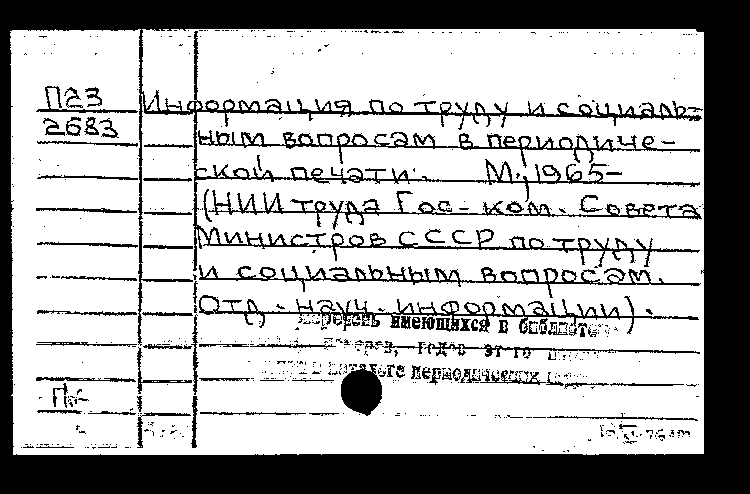 П23
2683
Информация по труду и социаль-
ным вопросам в периодиче-
ской печати. М., 1965-
(НИИ труда Гос. ком. Совета
Министров СССР по труду
и социальным вопросам.
Отд. науч. информации).
Перечень имеющихся в библиотеке
номеров, годов этого
каталоге периодических